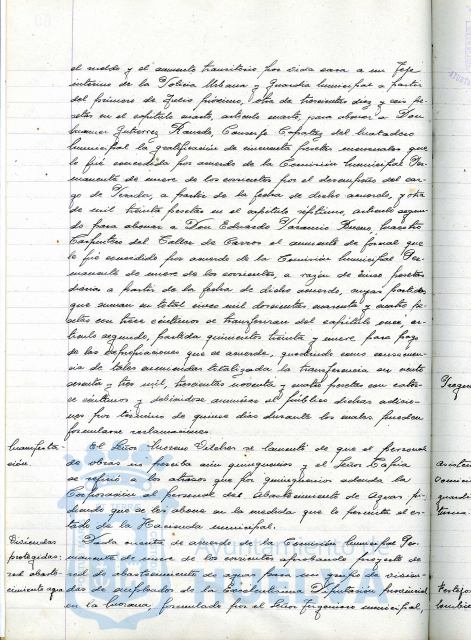 el sueldo y el aumento transitorio por vida cara a un Jefe
interino de la Policia Urbana y Guardia Municipal a partir
del primero de Julio próximo, otra de trescientas diez y seis pe-
setas en el capitulo sexto, articulo sexto, para abonar a Don
Manuel Gutierrez Conserje Capataz del Matadero
Municipal la gratificación de cincuenta pesetas mensuales que
le fué concedida por acuerdo de la Comisión Municipal Per-
manente de nueve de los corrientes por el desempeño del car-
go de Veedor, a partir de la fecha de dicho acuerdo, y otra
de mil treinta pesetas en el capitulo septimo, articulo segun-
do para abonar a Don Eduardo Bueno, Maestro
Carpintero del Taller de Carros el aumento de jornal que
le fué concedido por acuerdo de la Comisión Municipal Per-
manente de nueve de los corrientes, a razón de cinco pesetas
diarias a partir de la fecha de dicho acuerdo, cuyas partidas
que suman en total cinco mil doscientas cuarenta y cuatro pe-
setas con trece céntimos se transferiran del capitulo once, ar-
ticulo segundo, partida quinientas treinta y nueve para pago
de las expropiaciones que se acuerde, quedando como consecuen-
cia de tales acuerdos totalizada la transferencia en ciento
sesenta y tres mil, trescientas noventa y cuatro pesetas con cator-
ce céntimos y debiendose anunciar al público dichas adicio-
nes por término de quince dias durante los cuales pueden
formularse reclamaciones.
Manifesta-
ción.
El Señor Moreno se lamenta de que el personal
de obras no perciba aún quinquenios y el Señor Tapia
se refirió a los atrasos que por quinquenios adeuda la
Corporación al personal del Abastecimiento de Aguas pi-
diendo que se les abone en la medida que lo permita el es-
tado de la Hacienda municipal.
Viviendas
protegidas:
red abaste-
cimiento agua
Dada cuenta de acuerdo de la Comisión Municipal Per-
manente de nueve de los corrientes aprobando proyecto de
red de abastecimiento de aguas para un grupo de vivien-
das de empleados de la Excelentísima Diputación Provincial
en la formulado por el Señor Ingeniero Municipal,